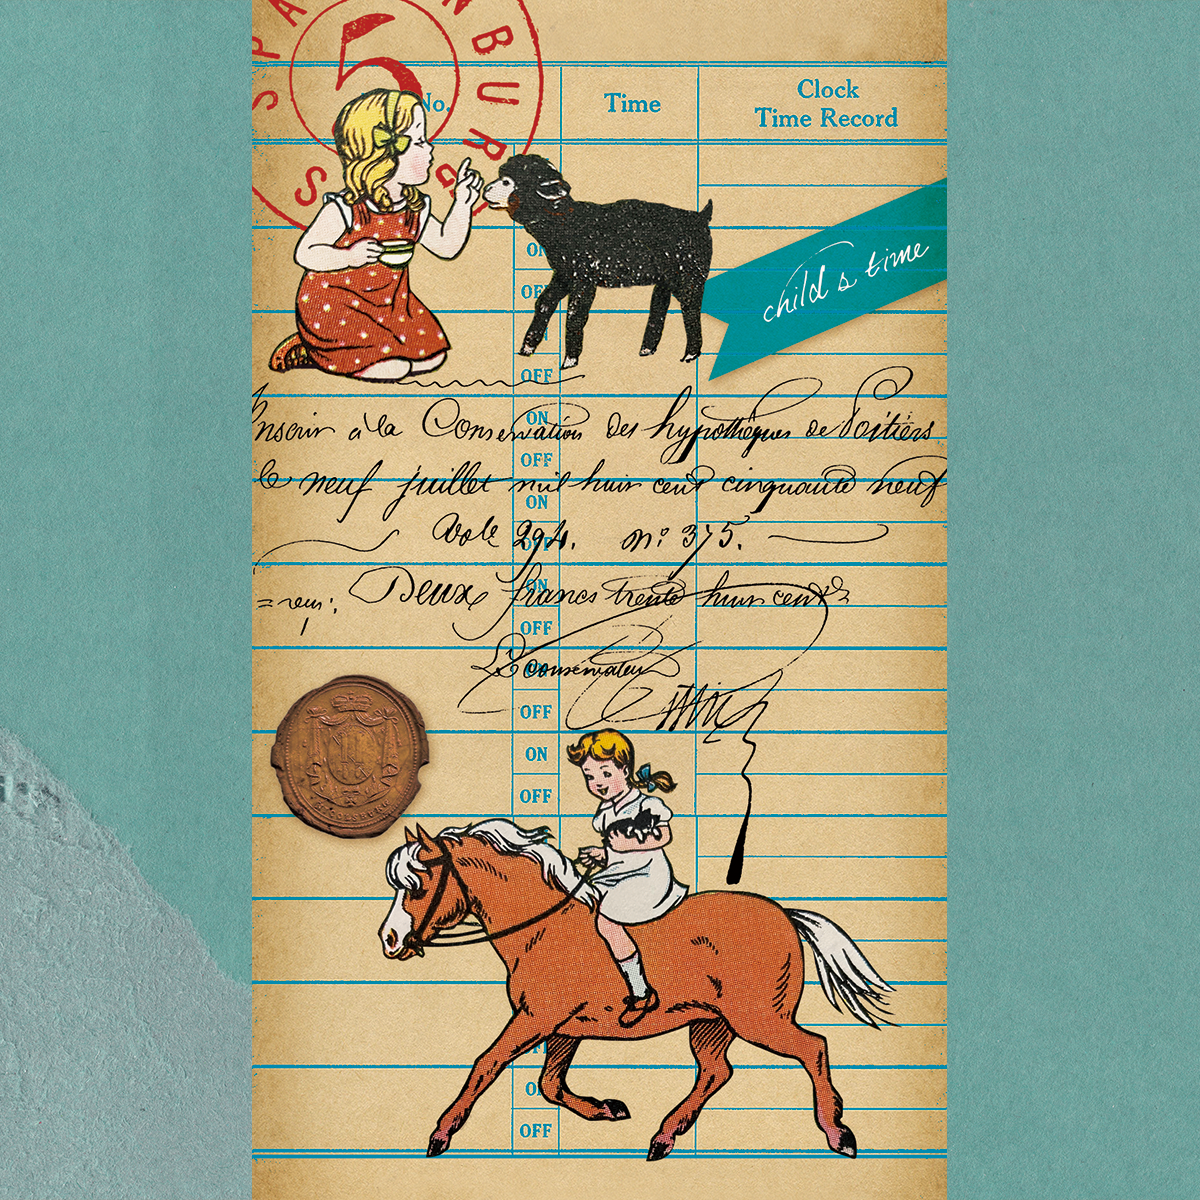 SPA NBURG S
5
No. Time Clock
Time Record
child s time
ON
OF
OFF
Inscrit à la Conservation des hypothèques de Poitiers
ON
OFF
le neuf juillet mil huit cent cinquante neuf
ON
Vol. 294. n.º 375.
ON
Deux francs trente huit cent
OFF
Le Conservateur
OFF
ON
OFF
OFF